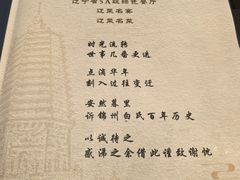 辽宁省5A级餐饮餐厅
辽菜名宴
辽菜名菜
时光流转
世事几番更迭
点滴华年
刻入过往变迁
安然暮里
诉锦州白氏百年历史
以诚待之
感沸之余借此谨致谢忱